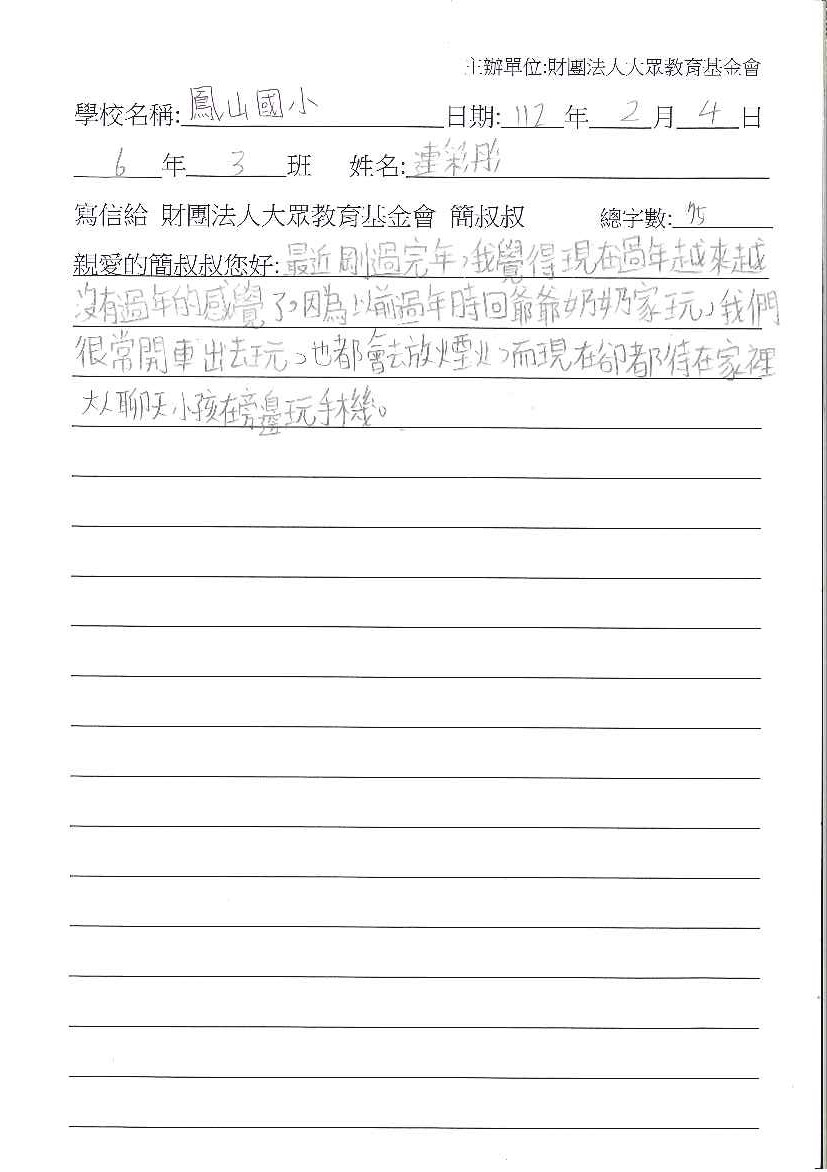 主辦單位:財團法人大眾教育基金會
學校名稱:鳳山國小 日期:112年2月4日
6年3班 姓名:連彩彤
寫信給 財團法人大眾教育基金會 簡叔叔 總字數:75
親愛的簡叔叔您好:最近剛過完年,我覺得現在過年越來越
沒有過年的感覺了。因為以前過年時回爺爺奶奶家玩,我們
很常開車出去玩,也都會去放煙火,而現在卻都待在家裡
大人聊天小孩在旁邊玩手機。